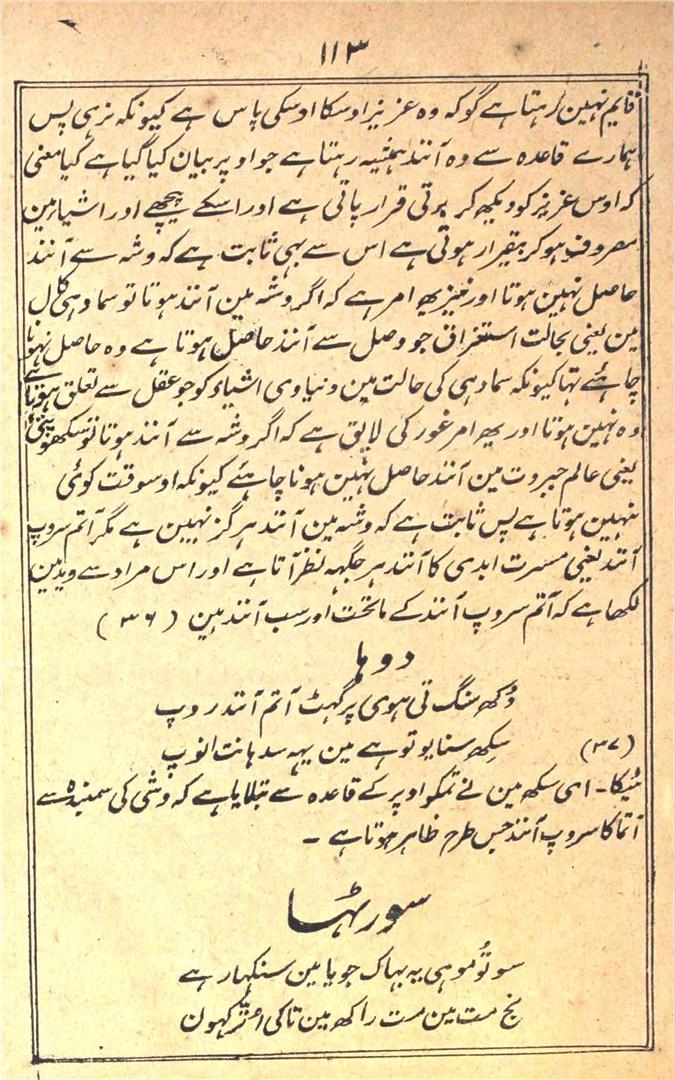 ۱۱۳
قایم نہین رہتا ہے گو کہ وہ عزیز اوسکا اوسکی پاس ہے کیونکہ نزہی پس
ہمارے قاعدہ سے وہ آنند ہمیشہ رہتا ہے جو اوپر بیان کیا گیا ہے کیا معنی
کہ اوس عزیز کو دیکھ کر برتی قرار پاتی ہے اور اسکے پیچھے اور اشیاء مین
مصروف ہو کر بیقرار ہوتی ہے اس سے بہی ثابت ہے کہ وشہ سے آنند
حاصل نہین ہوتا اور نیز یہ امر ہے کہ اگر وشہ مین آنند ہوتا تو سمادہی کال
مین یعنی بحالت استغراق جو وصل سے آنند حاصل ہوتا ہے وہ حاصل نہونا
چاہئے تہا کیونکہ سمادہی کی حالت مین دنیاوی اشیاء کو جو عقل سے تعلق
وہ نہین ہوتا اور یہ امر غور کی لایق ہے کہ اگر وشہ سے آنند ہوتا تو سکھوپتی
یعنی عالم جبروت مین آنند حاصل نہین ہونا چاہئے کیونکہ اوسوقت کوئی
نہین ہوتا ہے پس ثابت ہے کہ وشہ مین آنند ہرگز نہین ہے مگر آتم سروپ
آنند یعنی مسرت ابدی کا آنند ہر جگہہ نظر آتا ہے اور اس مراد سے ویدمین
لکھا ہے کہ آتم سروپ آنند کے ماتحت اور سب آنند ہین (۳۶)
دوہا
دُکھ سنگ تی ہوی پرگہٹ آتم آنند روپ
سکھ سنایو توہے مین یہہ سدہانت انوپ (۳۷)
ٹیکا۔ ای سکھ مین نے تمکو اوپر کے قاعدہ سے بتلایا ہے کہ وشی کی سمبندہ سے
آتما کا سروپ آنند جس طرح ظاہر ہوتا ہے ۔
سورٹہا
سو تُو موہی یہ بہاک جو یا مین سنکہا رہے
نج مت مین مت راکھ مین تاکی اُتّر کہون